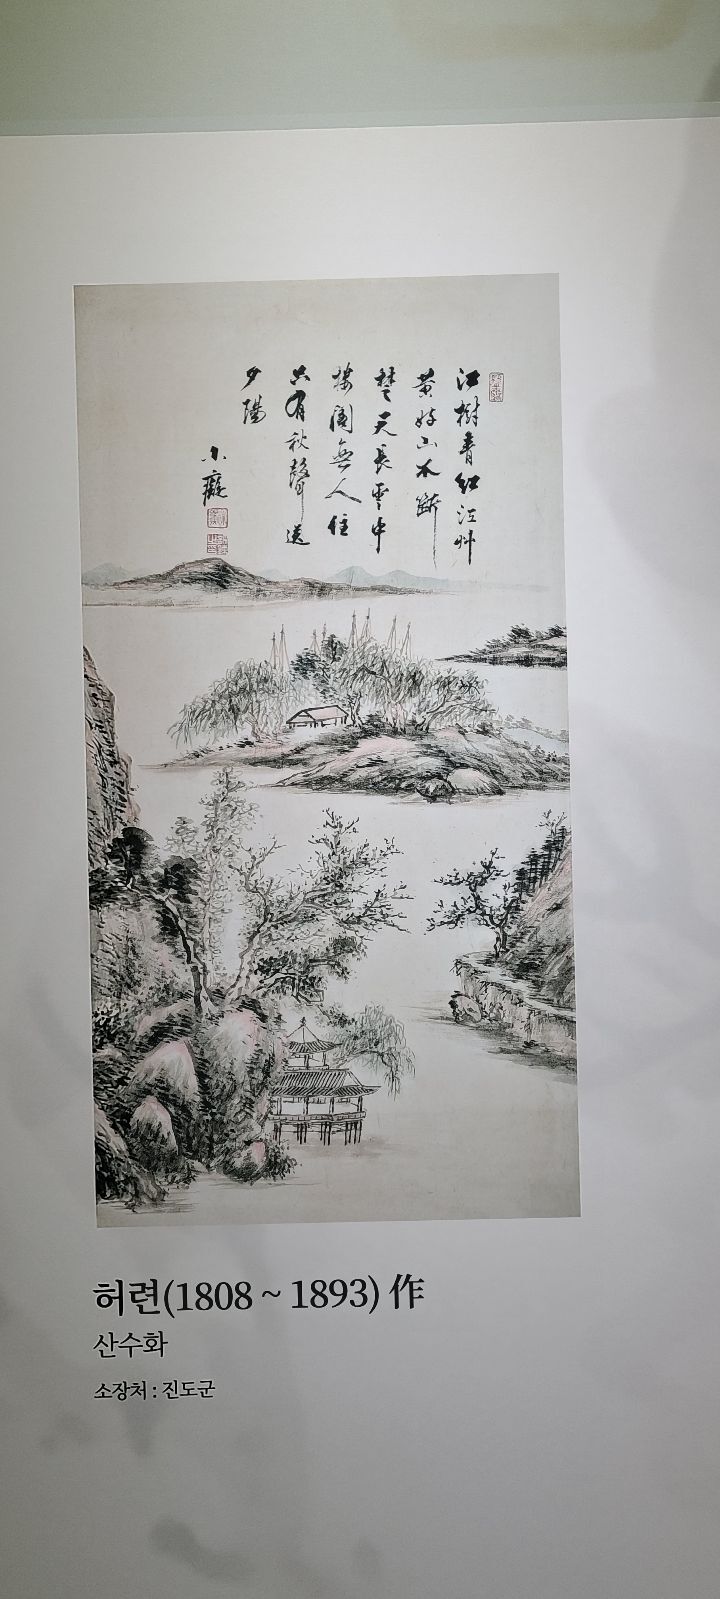 江樹青紅江艸
黃好山不斷
楚天長雲中
樓閣無人住
只有秋聲送
夕陽
小癡
허련(1808 ~ 1893) 作
산수화
소장처 : 진도군